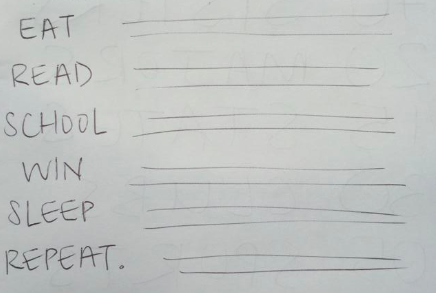 EAT
READ
SCHOOL
WIN
SLEEP
REPEAT.